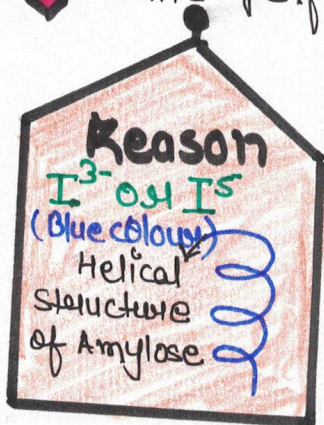 Reason
I³⁻ or I⁵
(Blue colour)
Helical
structure
of Amylose